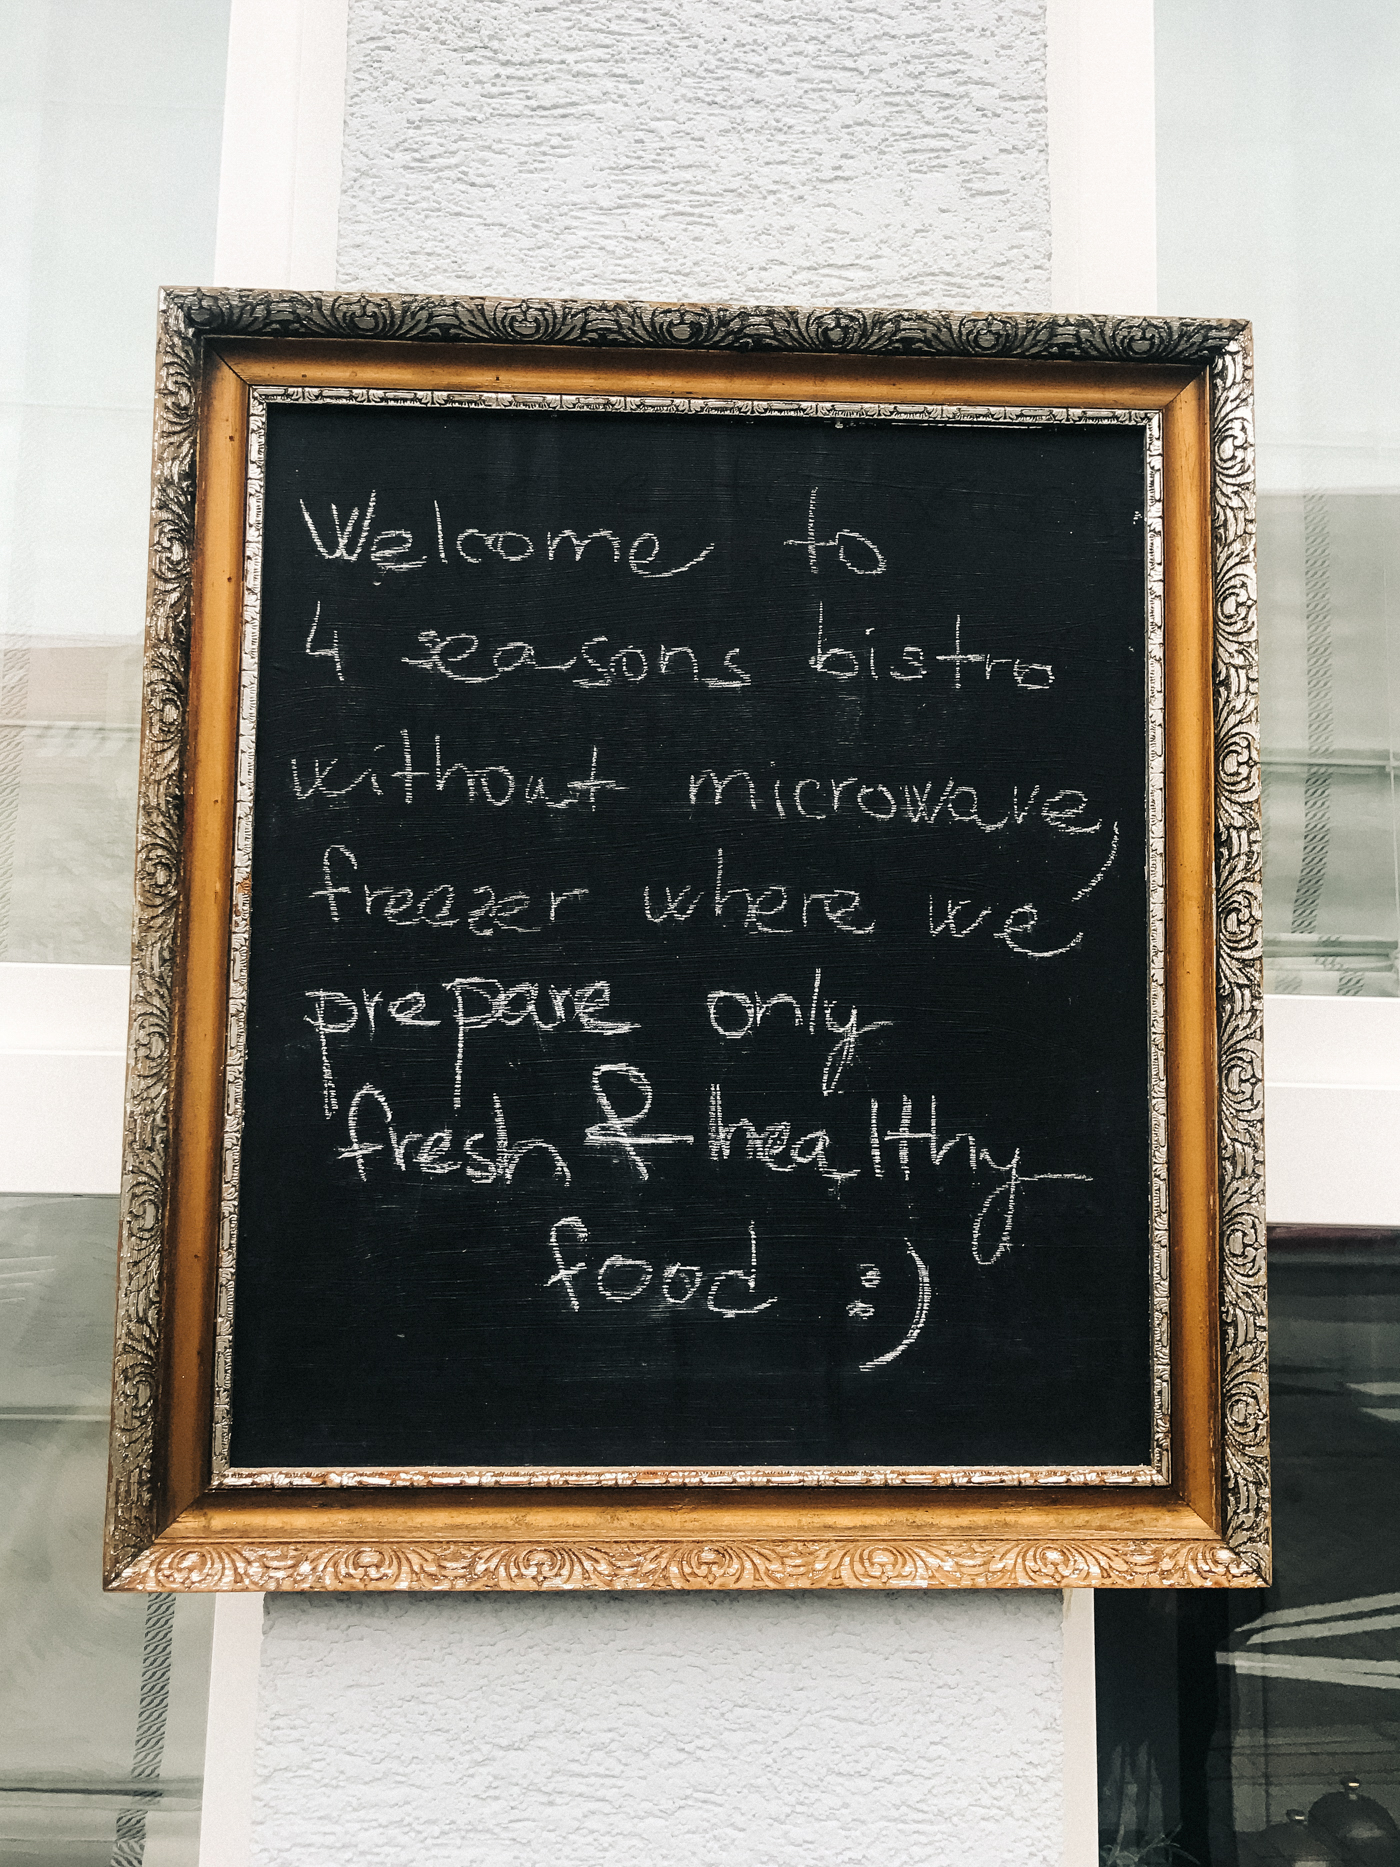 Welcome to
4 seasons bistro
without microwave,
freezer where we
prepare only
fresh & healthy
food :)